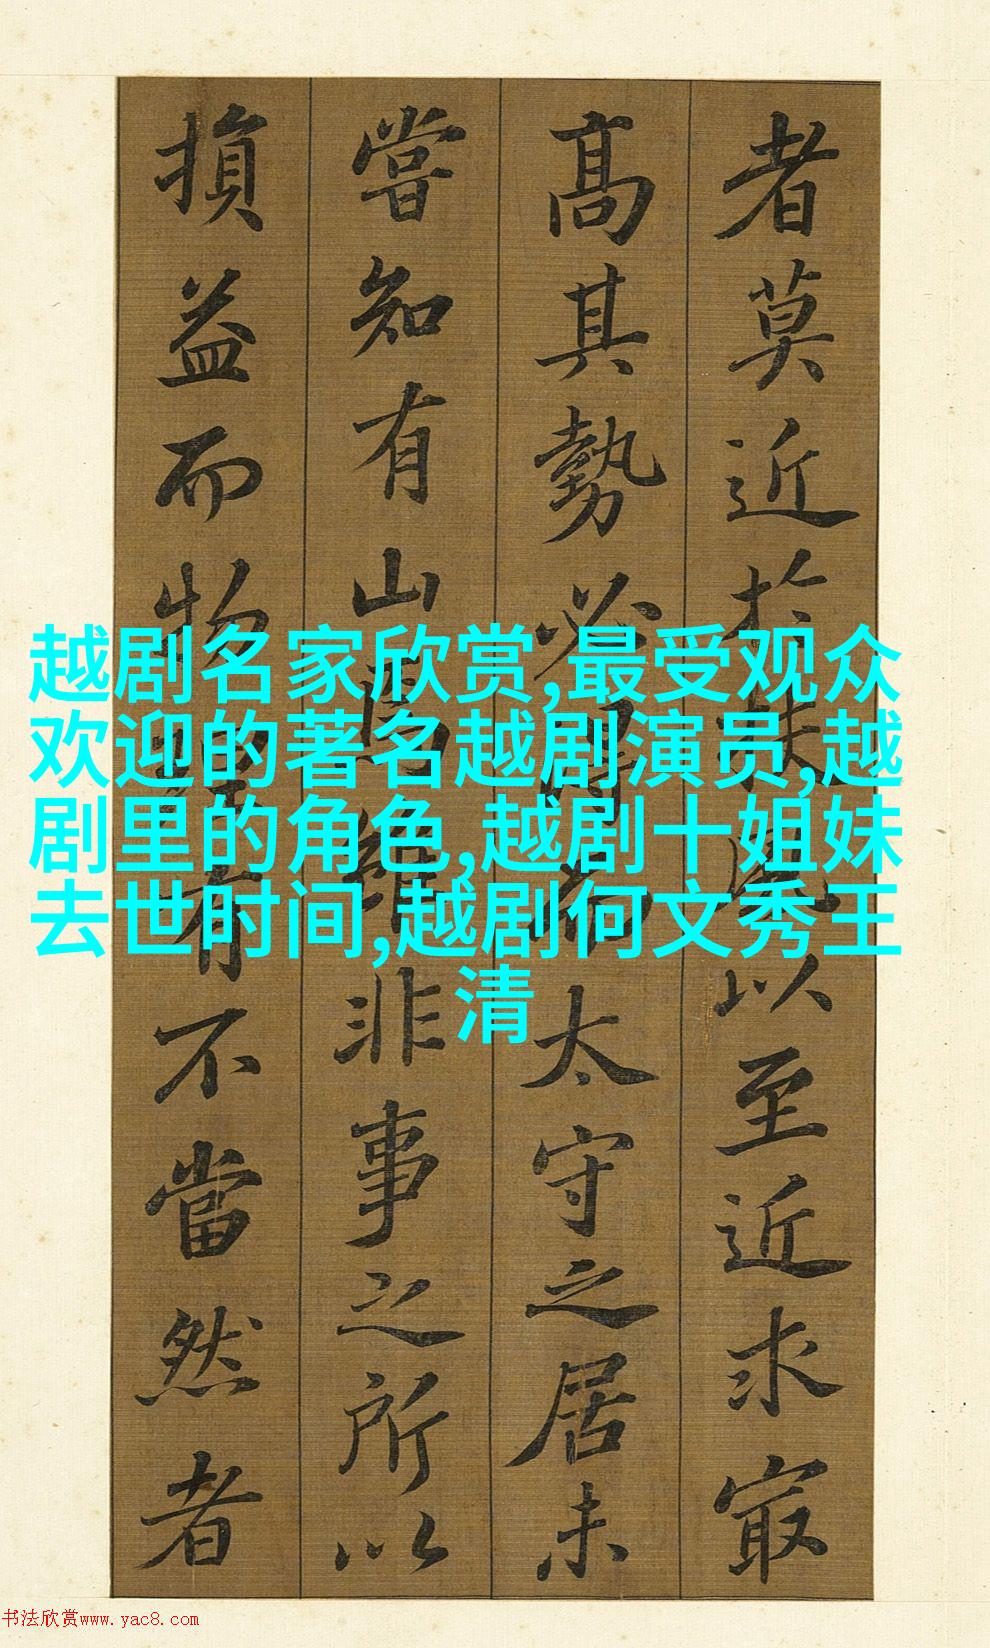 者莫近扵扶風以至近求㝡
高其勢必得而太守之居未
嘗知有山焉雖非事之所以
損益而物理有不當然者
越剧名家欣赏,最受观众
欢迎的著名越剧演员,越
剧里的角色,越剧十姐妹
去世时间,越剧何文秀王
清
书法欣赏www.yac8.com